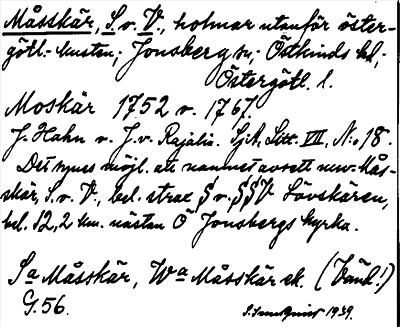 Måsskär, S. o. V., holmar utanför öster-
götl.-kusten; Jonsberg sn; Östkinds hd;
Östergötl. l.
Moskär 1752 o. 1767.
J. Hahn o. J. v. Rajalin. SjA, Litt. VII, N:o 18.
Det synes möjl. att namnet avsett nuv. Mås-
skär, S. o. V., bel. strax S o. SSV Lövskären,
bel. 12,2 km. nästan O Jonsbergs kyrka.
Sa Måsskär, Wa Måsskär ek. (Vänd!)
G. 56.
1939.